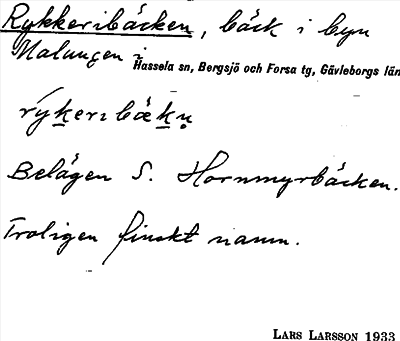 Rykkeribäcken, bäck i byn
Malungen i
Hassela sn, Bergsjö och Forsa tg, Gävleborgs län
rýkerıbäkn̥
Belägen S. Hornmyrbäcken.
Troligen finskt namn.
LARS LARSSON 1933